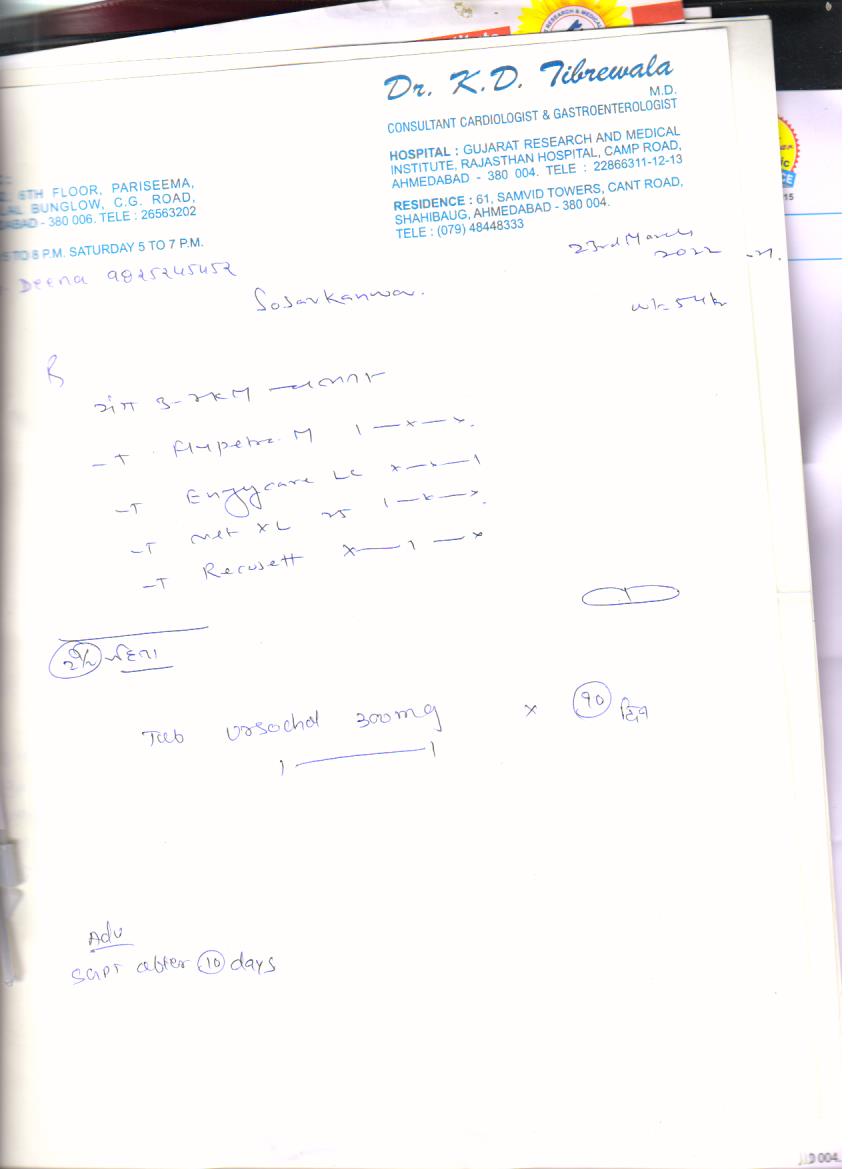 Dr. K.D. Tibrewala
M.D.
CONSULTANT CARDIOLOGIST & GASTROENTEROLOGIST
HOSPITAL : GUJARAT RESEARCH AND MEDICAL
INSTITUTE, RAJASTHAN HOSPITAL, CAMP ROAD,
AHMEDABAD - 380 004. TELE : 22866311-12-13
RESIDENCE : 61, SAMVID TOWERS, CANT ROAD,
SHAHIBAUG, AHMEDABAD - 380 004.
TELE : (079) 48448333
6TH FLOOR, PARISEEMA,
BUNGLOW, C.G. ROAD,
380 006. TELE : 26563202
TO 8 P.M. SATURDAY 5 TO 7 P.M.
Deena 9825245452
23rd March
2022
Sosarkanwar.
wt- 54k
-T M 1 — x — x.
-T Enzycare LC x — x — 1
-T Met XL 25 1 — x — x.
-T x — 1 — x
2½
Tab Ursochol 300mg x १० दिन
1 — 1
Adv
SGPT after 10 days
004.